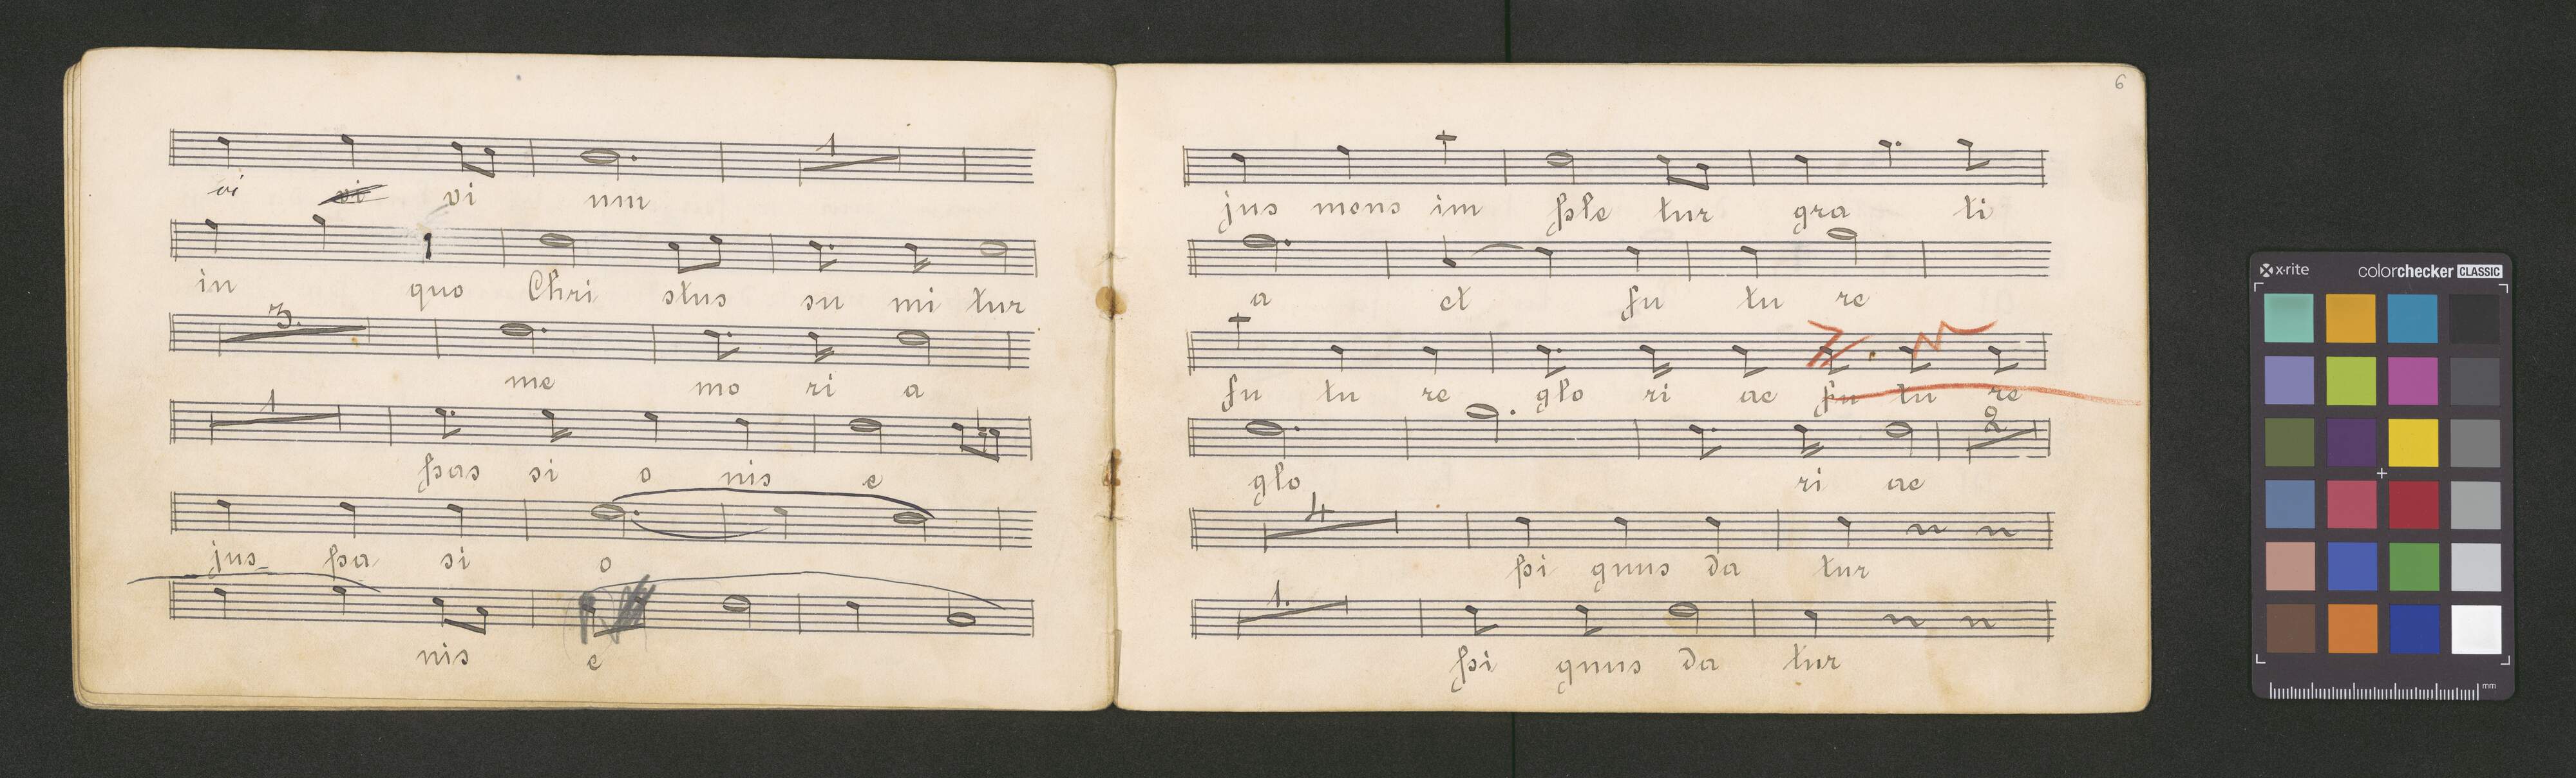 vi vi vi um
1
in quo Chri stus su mi tur
3.
me mo ri a
1
pas si o nis e
jus pa si o
nis e
6
jus mens im ple tur gra ti
a et fu tu re
fu tu re glo ri ae fu tu re
glo ri ae
2
4
pi gnus da tur
1.
pi gnus da tur
x-rite
colorchecker CLASSIC
mm